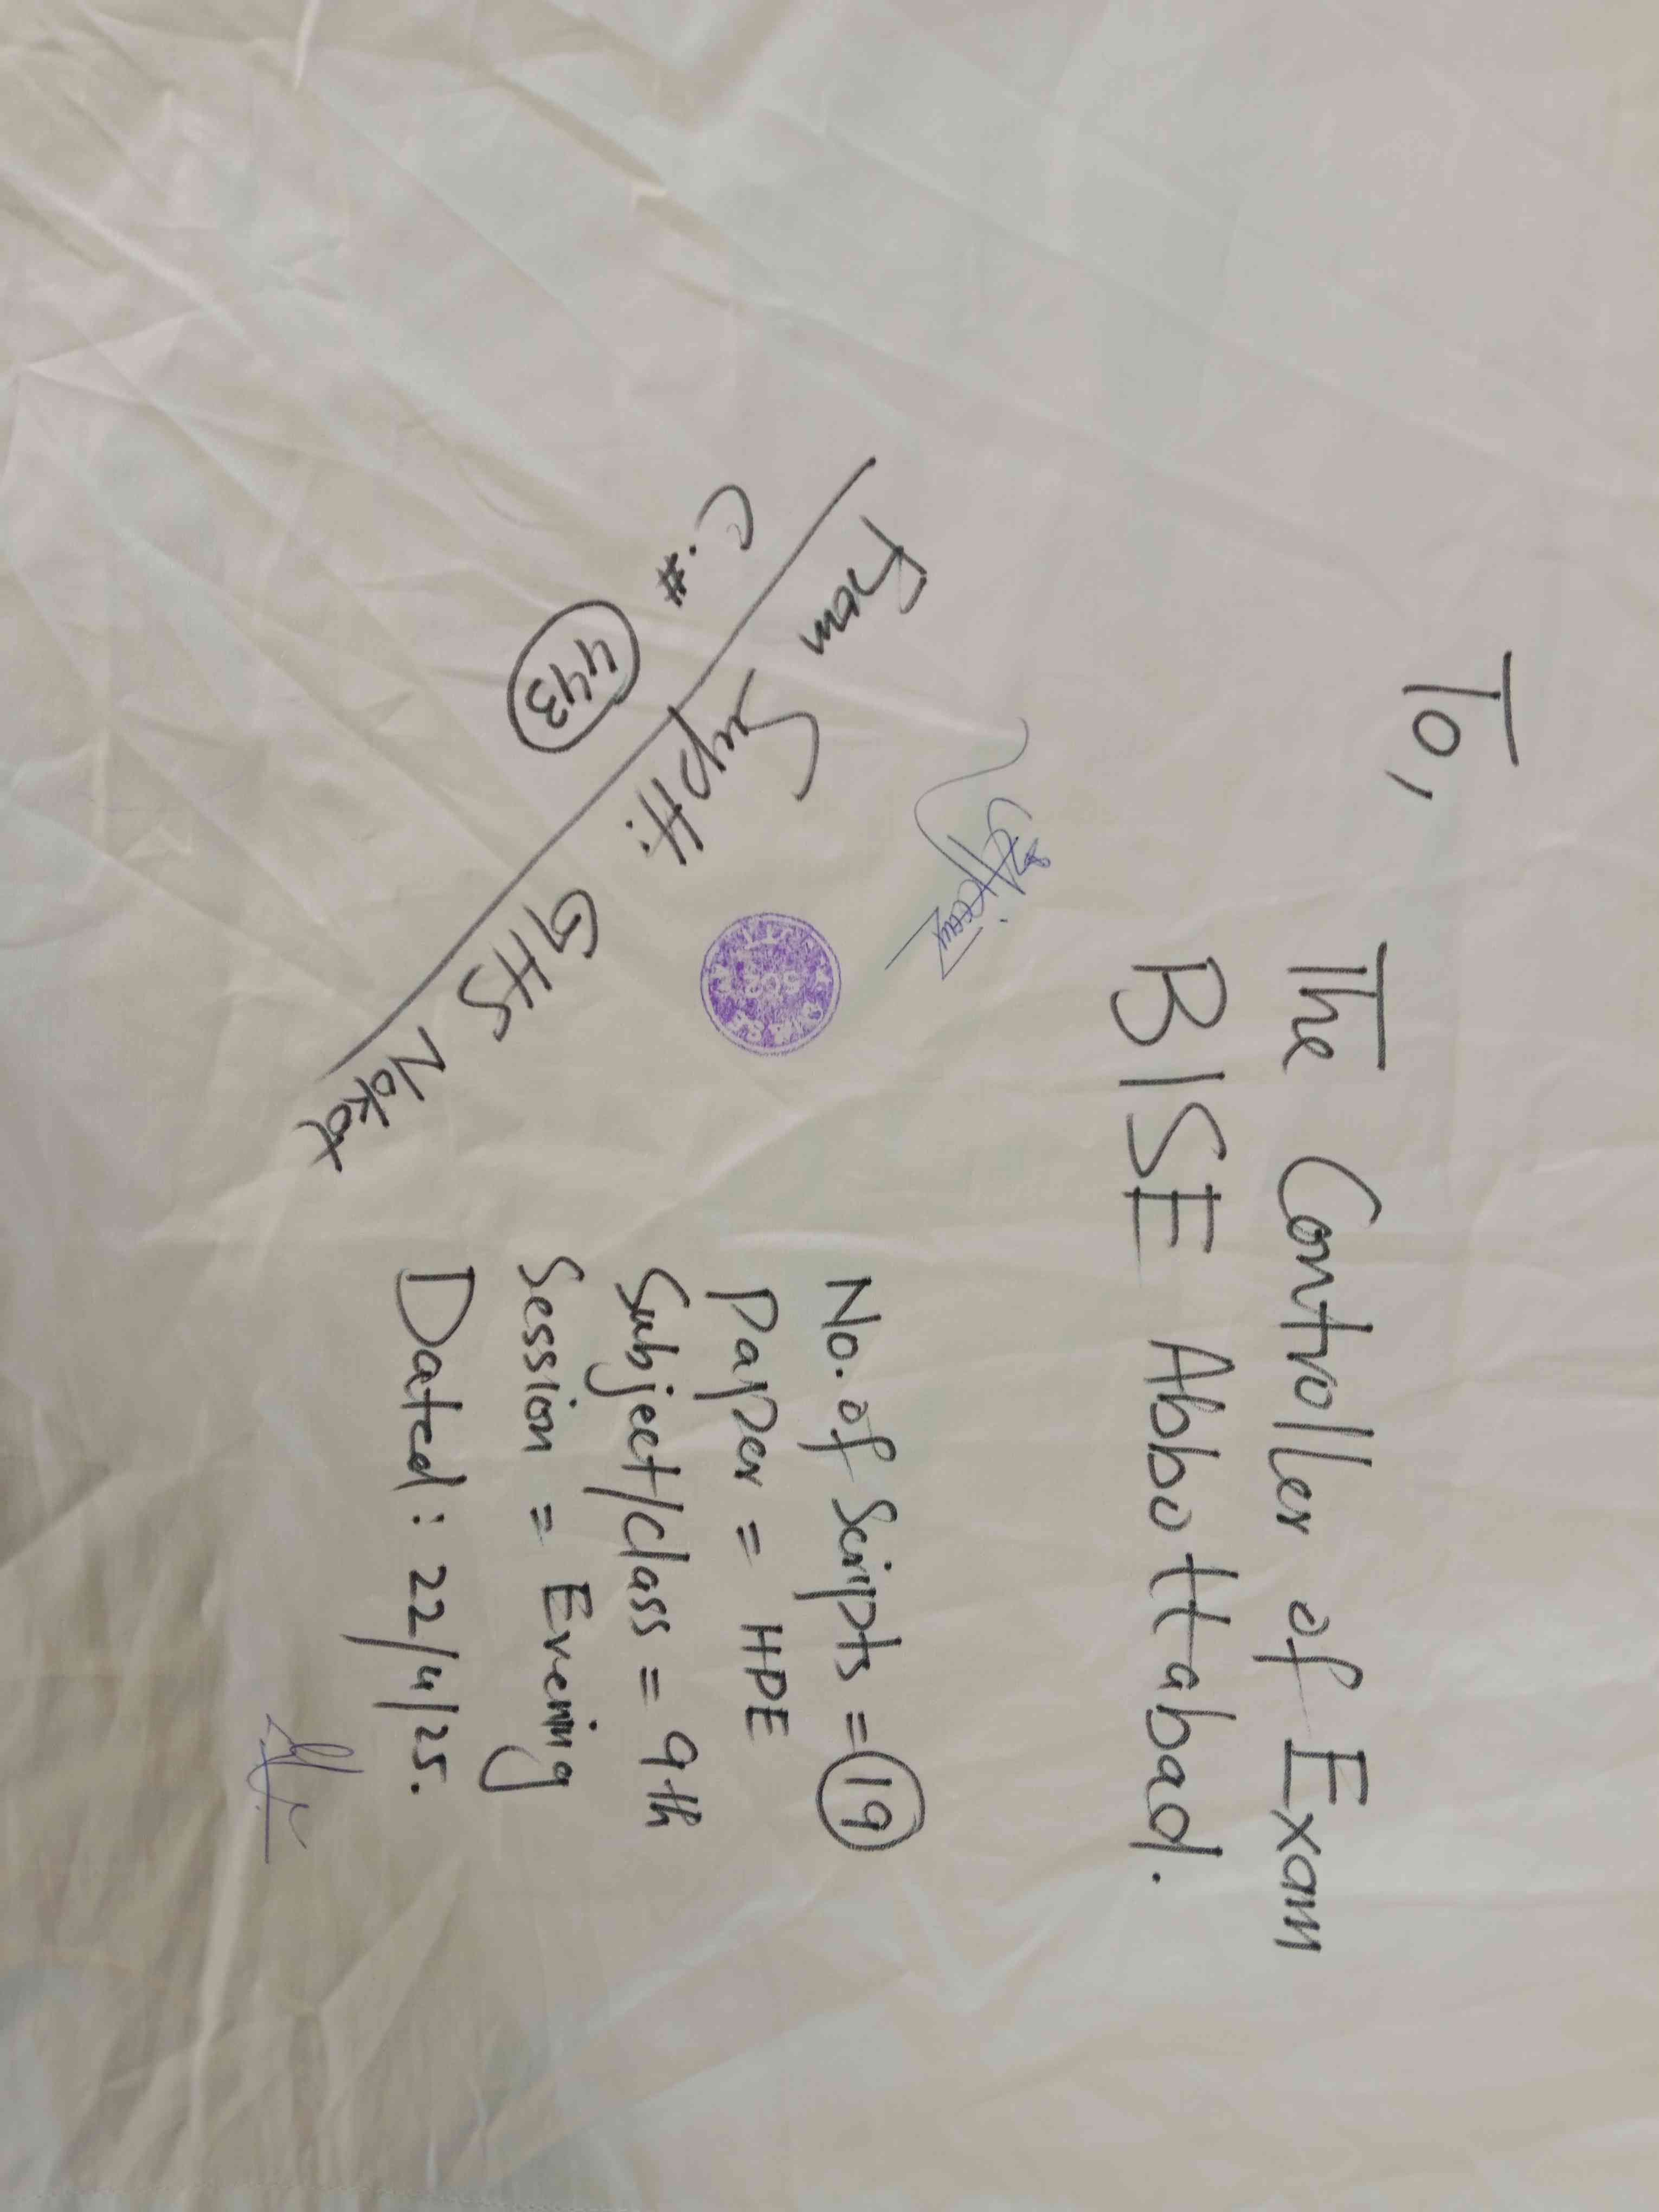 To,
The Controller of Exam
BISE Abbottabad.
No. of Scripts = 19
Paper = HPE
Subject/class = 9th
Session = Evening
Dated: 22/4/25.
From Suptt: GHS Nokot
C.# 443